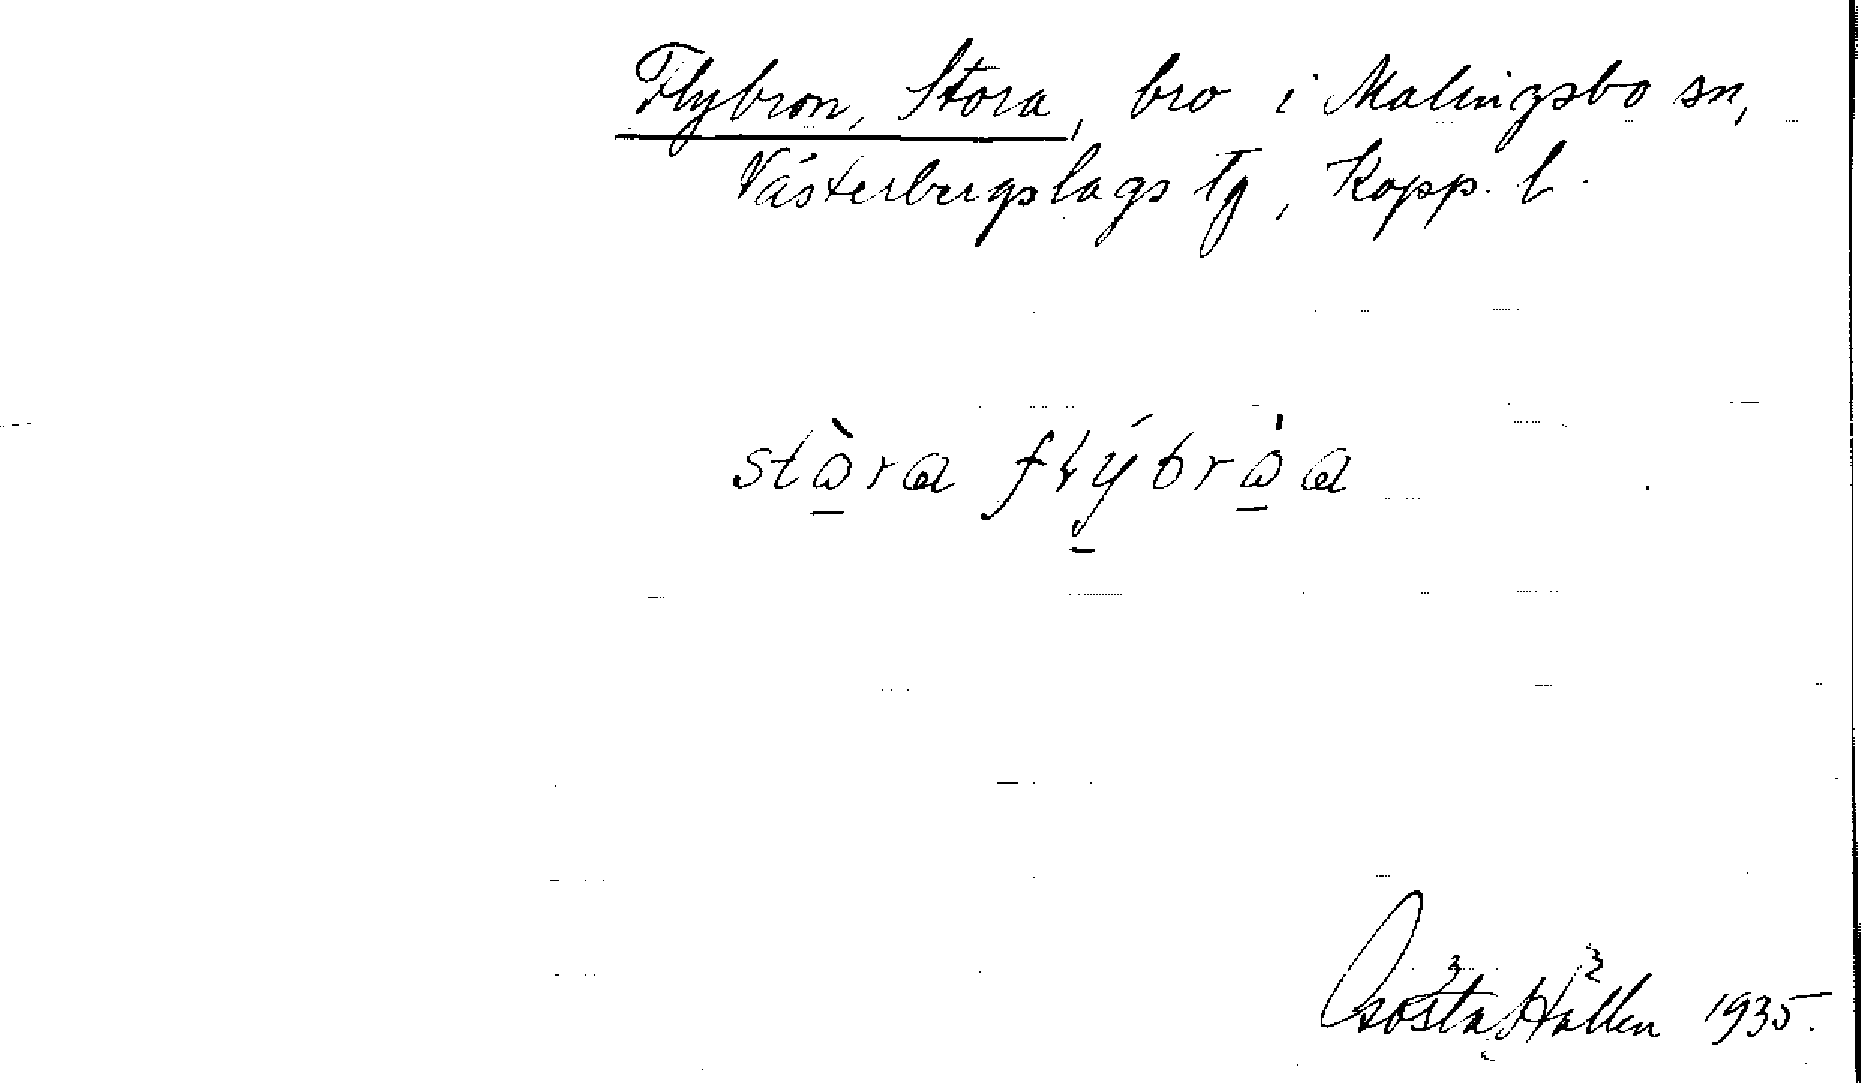 Flybron, Stora, bro i Malingsbo sn,
Västerbergslags tg, Kopp. l.
stὰra flýbrὰa
Gösta Hallen 1935.